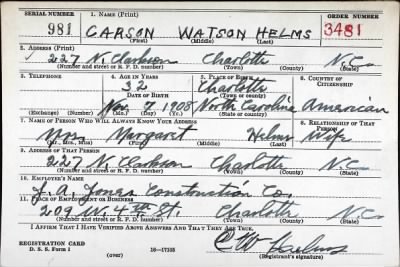 SERIAL NUMBER 1. NAME (Print) ORDER NUMBER
981 CARSON WATSON HELMS 3481
(First) (Middle) (Last)
2. ADDRESS (Print)
227 N. Clarkson Charlotte N.C.
(Number and street or R. F. D. number) (Town) (County) (State)
3. TELEPHONE 4. AGE IN YEARS 5. PLACE OF BIRTH 6. COUNTRY OF CITIZENSHIP
32 Charlotte
DATE OF BIRTH (Town or county)
Nov. 7 1908 North Carolina American
(Exchange) (Number) (Mo.) (Day) (Yr.) (State or country)
7. NAME OF PERSON WHO WILL ALWAYS KNOW YOUR ADDRESS 8. RELATIONSHIP OF THAT PERSON
Mrs. Margaret Helms Wife
(Mr., Mrs., Miss) (First) (Middle) (Last)
9. ADDRESS OF THAT PERSON
227 N. Clarkson Charlotte N.C.
(Number and street or R. F. D. number) (Town) (County) (State)
10. EMPLOYER'S NAME
J. A. Jones Construction Co.
11. PLACE OF EMPLOYMENT OR BUSINESS
209 W. 4th St. Charlotte N.C.
(Number and street or R. F. D. number) (Town) (County) (State)
I AFFIRM THAT I HAVE VERIFIED ABOVE ANSWERS AND THAT THEY ARE TRUE.
REGISTRATION CARD
D. S. S. Form 1 16-17105 C W Helms
(Registrant's signature)